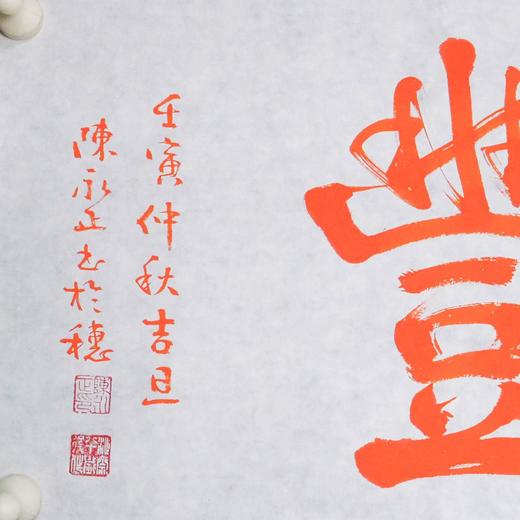 豐
壬寅仲秋吉旦
陳永正书於穗